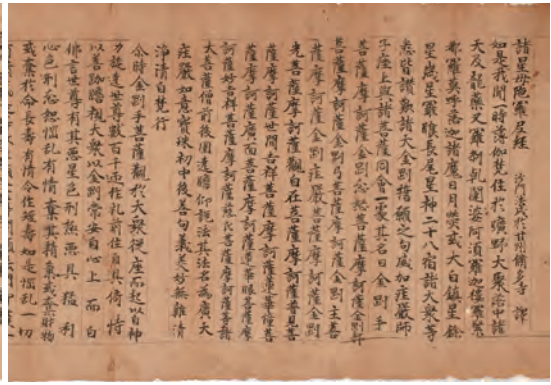 諸星母陀羅尼經 沙門法成於甘州脩多寺 譯
如是我聞一時薄伽梵住於曠野大聚落中諸
天及龍藥叉羅剎乾闥婆阿須羅迦樓羅緊
那羅莫呼洛迦諸魔日月熒或太白鎮星餘
星歲星羅睺長尾星神二十八宿諸大眾等
悉皆讚歎諸大金剛誓願之句威加莊嚴師
子座上與諸菩薩同會一處其名曰金剛手
菩薩摩訶薩金剛忿怒菩薩摩訶薩金剛部
菩薩摩訶薩金剛弓菩薩摩訶薩金剛主菩
薩摩訶薩金剛莊嚴菩薩摩訶薩金剛
光菩薩摩訶薩觀自在菩薩摩訶薩普見菩
薩摩訶薩世間吉祥菩薩摩訶薩蓮華幢菩
薩摩訶薩廣面菩薩摩訶薩蓮華眼菩薩摩
訶薩妙吉祥菩薩摩訶薩慈氏菩薩摩訶薩等諸
大菩薩僧前後圍遶瞻仰說法其法名為廣大
莊嚴如意寶珠初中後善句義美妙無雜清
淨清白梵行
尒時金剛手菩薩觀於大眾從座而起以自神
力旋遶世尊數百千迊作礼前住自具倚恃
以善跏瞻視大眾以金剛掌安自心上而白
佛言世尊有其惡星色刑惡具猛利
心色刑忿怒惱亂有情奪其精氣或奪財物
或奪於命長壽有情令作短壽如是惱亂一切